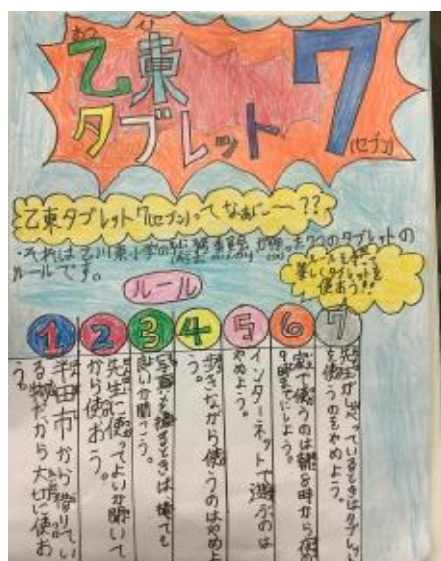 おつ ひがし
乙東
タブレット7
(セブン)
乙東タブレット7(セブン)ってなあに~??
・それは乙川東小学の が 7つのタブレットの
ルールです。
ルールを守って
楽しくタブレットを
使おう!!
ルール
1
半田市から借りてい
る物だから大切に使お
う。
2
先生に使ってよいか聞いて
から使おう。
3
写真を撮るときは、撮ても
良いか聞こう。
4
歩きながら使うのはやめよ
う。
5
インターネットで遊ぶのは
やめよう。
6
家で使うのは朝8時から夜の
9時までにしよう。
7
先生がしゃべっているときはタブレット
を使うのをやめよう。